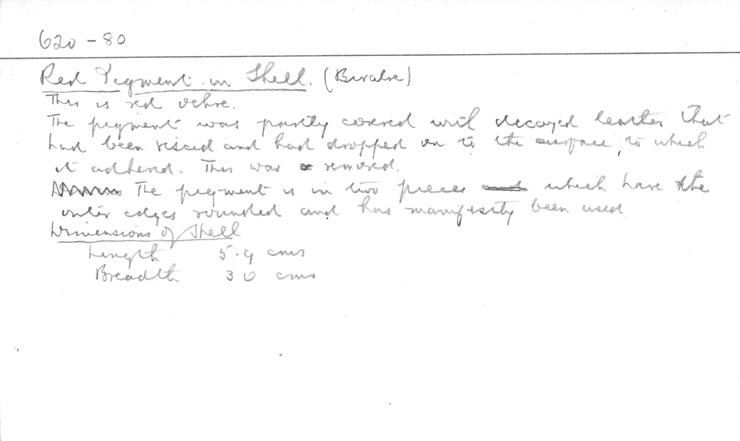 620 - 80
Red Pigment in Shell. (Bivalve)
This is red ochre.
The pigment was partly covered with decayed leather that
had been viscid and had dropped on to the surface, to which
it adhered. This was removed.
The pigment is in two pieces which have the
outer edges rounded and has manifestly been used
Dimensions of Shell
Length 5.9 cms
Breadth 3 0 cms